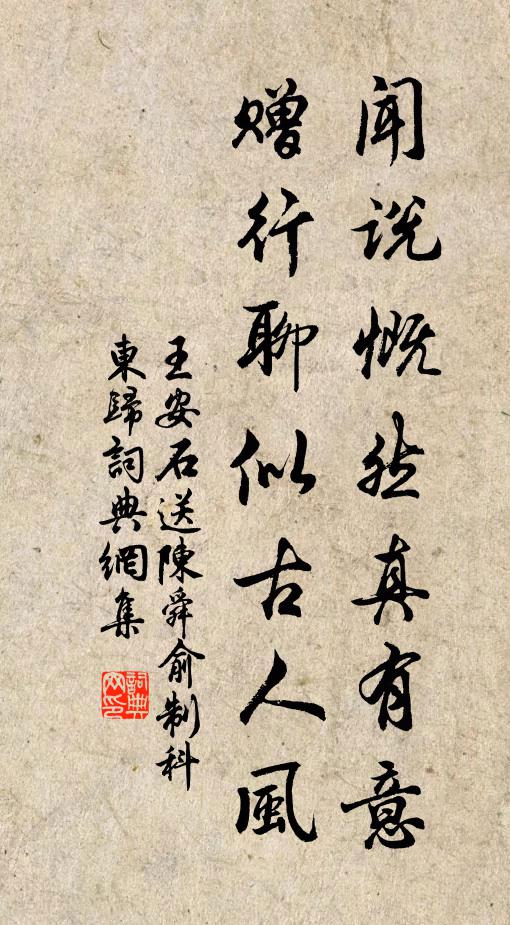 闻说慨然真有意
赠行聊似古人風
王安石送陳舜俞制科
東歸詞典網集
詞典网印